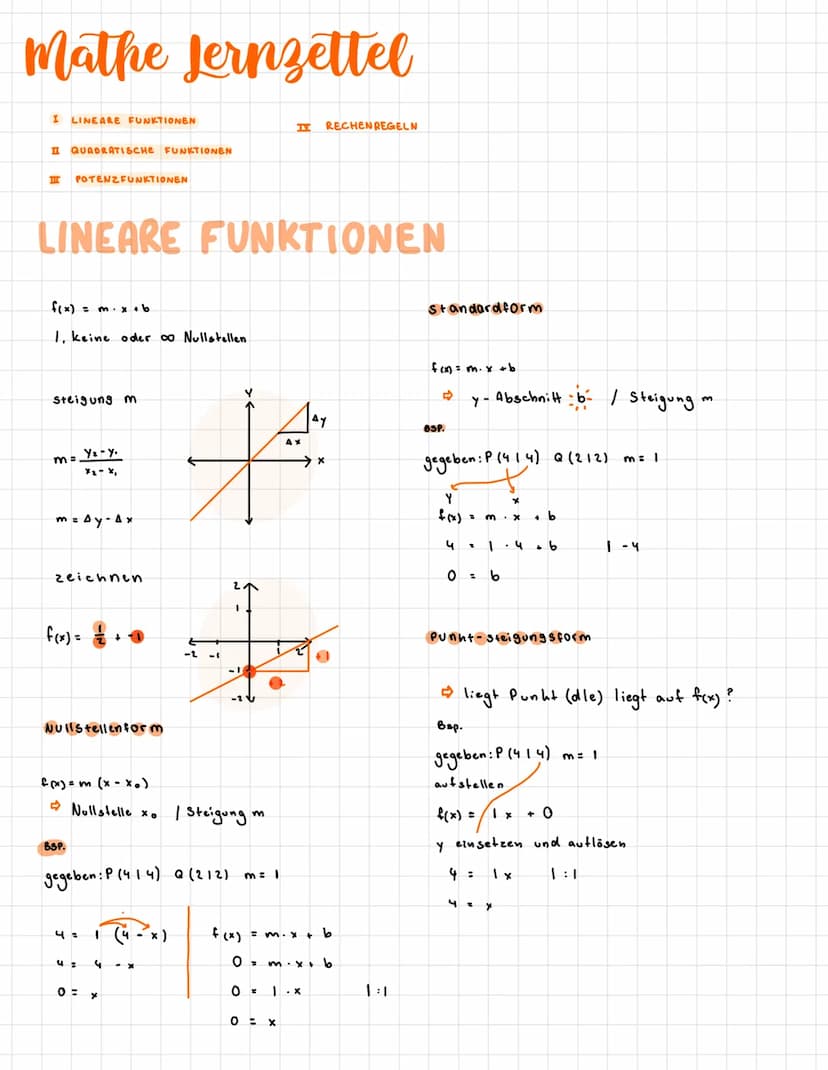 Mathe Lernzettel
I LINEARE FUNKTIONEN
II QUADRATISCHE FUNKTIONEN
III POTENZFUNKTIONEN
IV RECHENREGELN
LINEARE FUNKTIONEN
f(x) = m · x + b
1, keine oder ∞ Nullstellen
steigung m
m = (y₂ - y₁) / (x₂ - x₁)
m = Δy - Δx
y
Δy
Δx
x
zeichnen
f(x) = 1/2 + -1
2
1
-2 -1 1 2
-1
-2
+1
+2
Nullstellenform
f(x) = m (x - x₀)
⇨ Nullstelle x₀ / Steigung m
BSP.
gegeben: P (4 | 4) Q (2 | 2) m = 1
4 = 1 (4 - x)
4 = 4 - x
0 = x
f(x) = m · x + b
0 = m · x + b
0 = 1 · x | :1
0 = x
Standardform
f(x) = m · x + b
⇨ y - Abschnitt b / Steigung m
BSP.
gegeben: P (4 | 4) Q (2 | 2) m = 1
y x
f(x) = m · x + b
4 = 1 · 4 + b | -4
0 = b
Punkt-steigungsform
⇨ liegt Punkt (d|e) liegt auf f(x) ?
Bsp.
gegeben: P (4 | 4) m = 1
aufstellen
f(x) = 1x + 0
y einsetzen und auflösen
4 = 1x | :1
4 = x